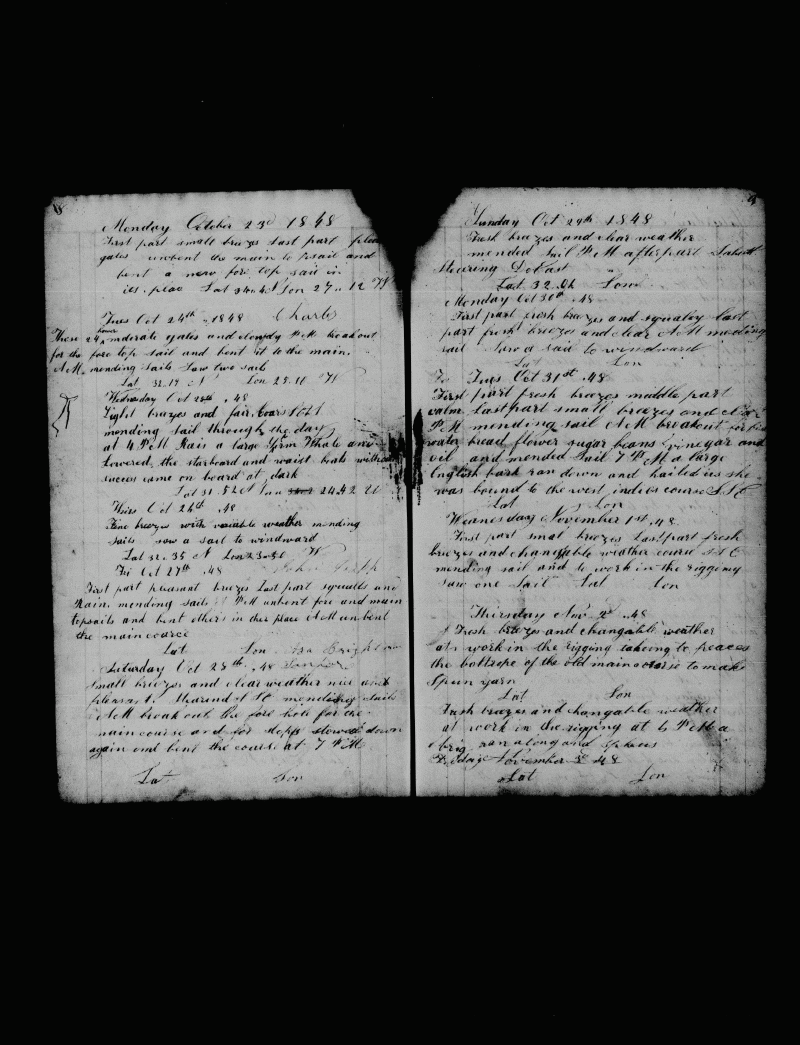 Monday October 23d 1848
First part small brezes Last part
gales unbent the main topsail and
bent a new fore top sail in
its place Lat 34 04 N Lon 27 12 W
Tues Oct 24th 1848 Charls
These 24 hours moderate gales and clowdy P M breakout
for the fore top sail and bent it to the main.
A M. mending Sails Saw two sails
Lat 32.19 N Lon 25.10 W
Wednesday Oct 25th .48
Light brezes and fair
mending sail through the day
at 4 P M Rais a large Sperm Whale and
Lowered, the starboard and waist boats without
sucses came on board at dark
Lat 31.52 N Lon 24.42 W
Oct 26th .48
Fine breezes with variable weather mending
sails saw a sail to windward
Lat 32.35 N Lon 23.50 W
Fri Oct 27th .48
First part pleasant breezes Last part squalls and
Rain. mending sails P M unbent fore and main
topsails and bent others in ther place A M unbent
the main cource
Lat Lon
Saturday Oct 28th .48
Small breezes and clear weather nice and
plesant. mending sails
A M break out the fore hole for the
main course and for stowed down
again and bent the course at 7 P M
Lat Lon
Sunday Oct 29th 1848
Fresh breezes and clear weather
mended Sail P M after part
Stearing Do East
Lat 32.06 Lon
Monday Oct 30th .48
First part fresh breezes and squaley Last
part fresh breezes and clear A M mending
sail Saw a sail to windward
Lat Lon
Tues Oct 31st .48
First part fresh breezes middle part
calm Last part small breezes and clear
P M mending sail A M breakout for
water bread flower sugar beans vinegar and
oil and mended Sail 7 P M a large
English bark ran down and hailed us she
was bound to the west indies course S S E
Lat Lon
Wednesday November 1st .48
First part smal breezes Last part fresh
breezes and changable weather course S S E
mending sail and to work in the riggeing
saw one Sail Lat Lon
Thursday Nov 2d .48
Fresh breezes and changable weather
at work in the rigging takeing to peaces
the boltrope of the old main corse to make
Spun yarn
Lat Lon
Fresh breezes and changable weather
at work in the rigging at 6 P M a
brig ran along and spoke us
Friday November 3d 48
Lat Lon